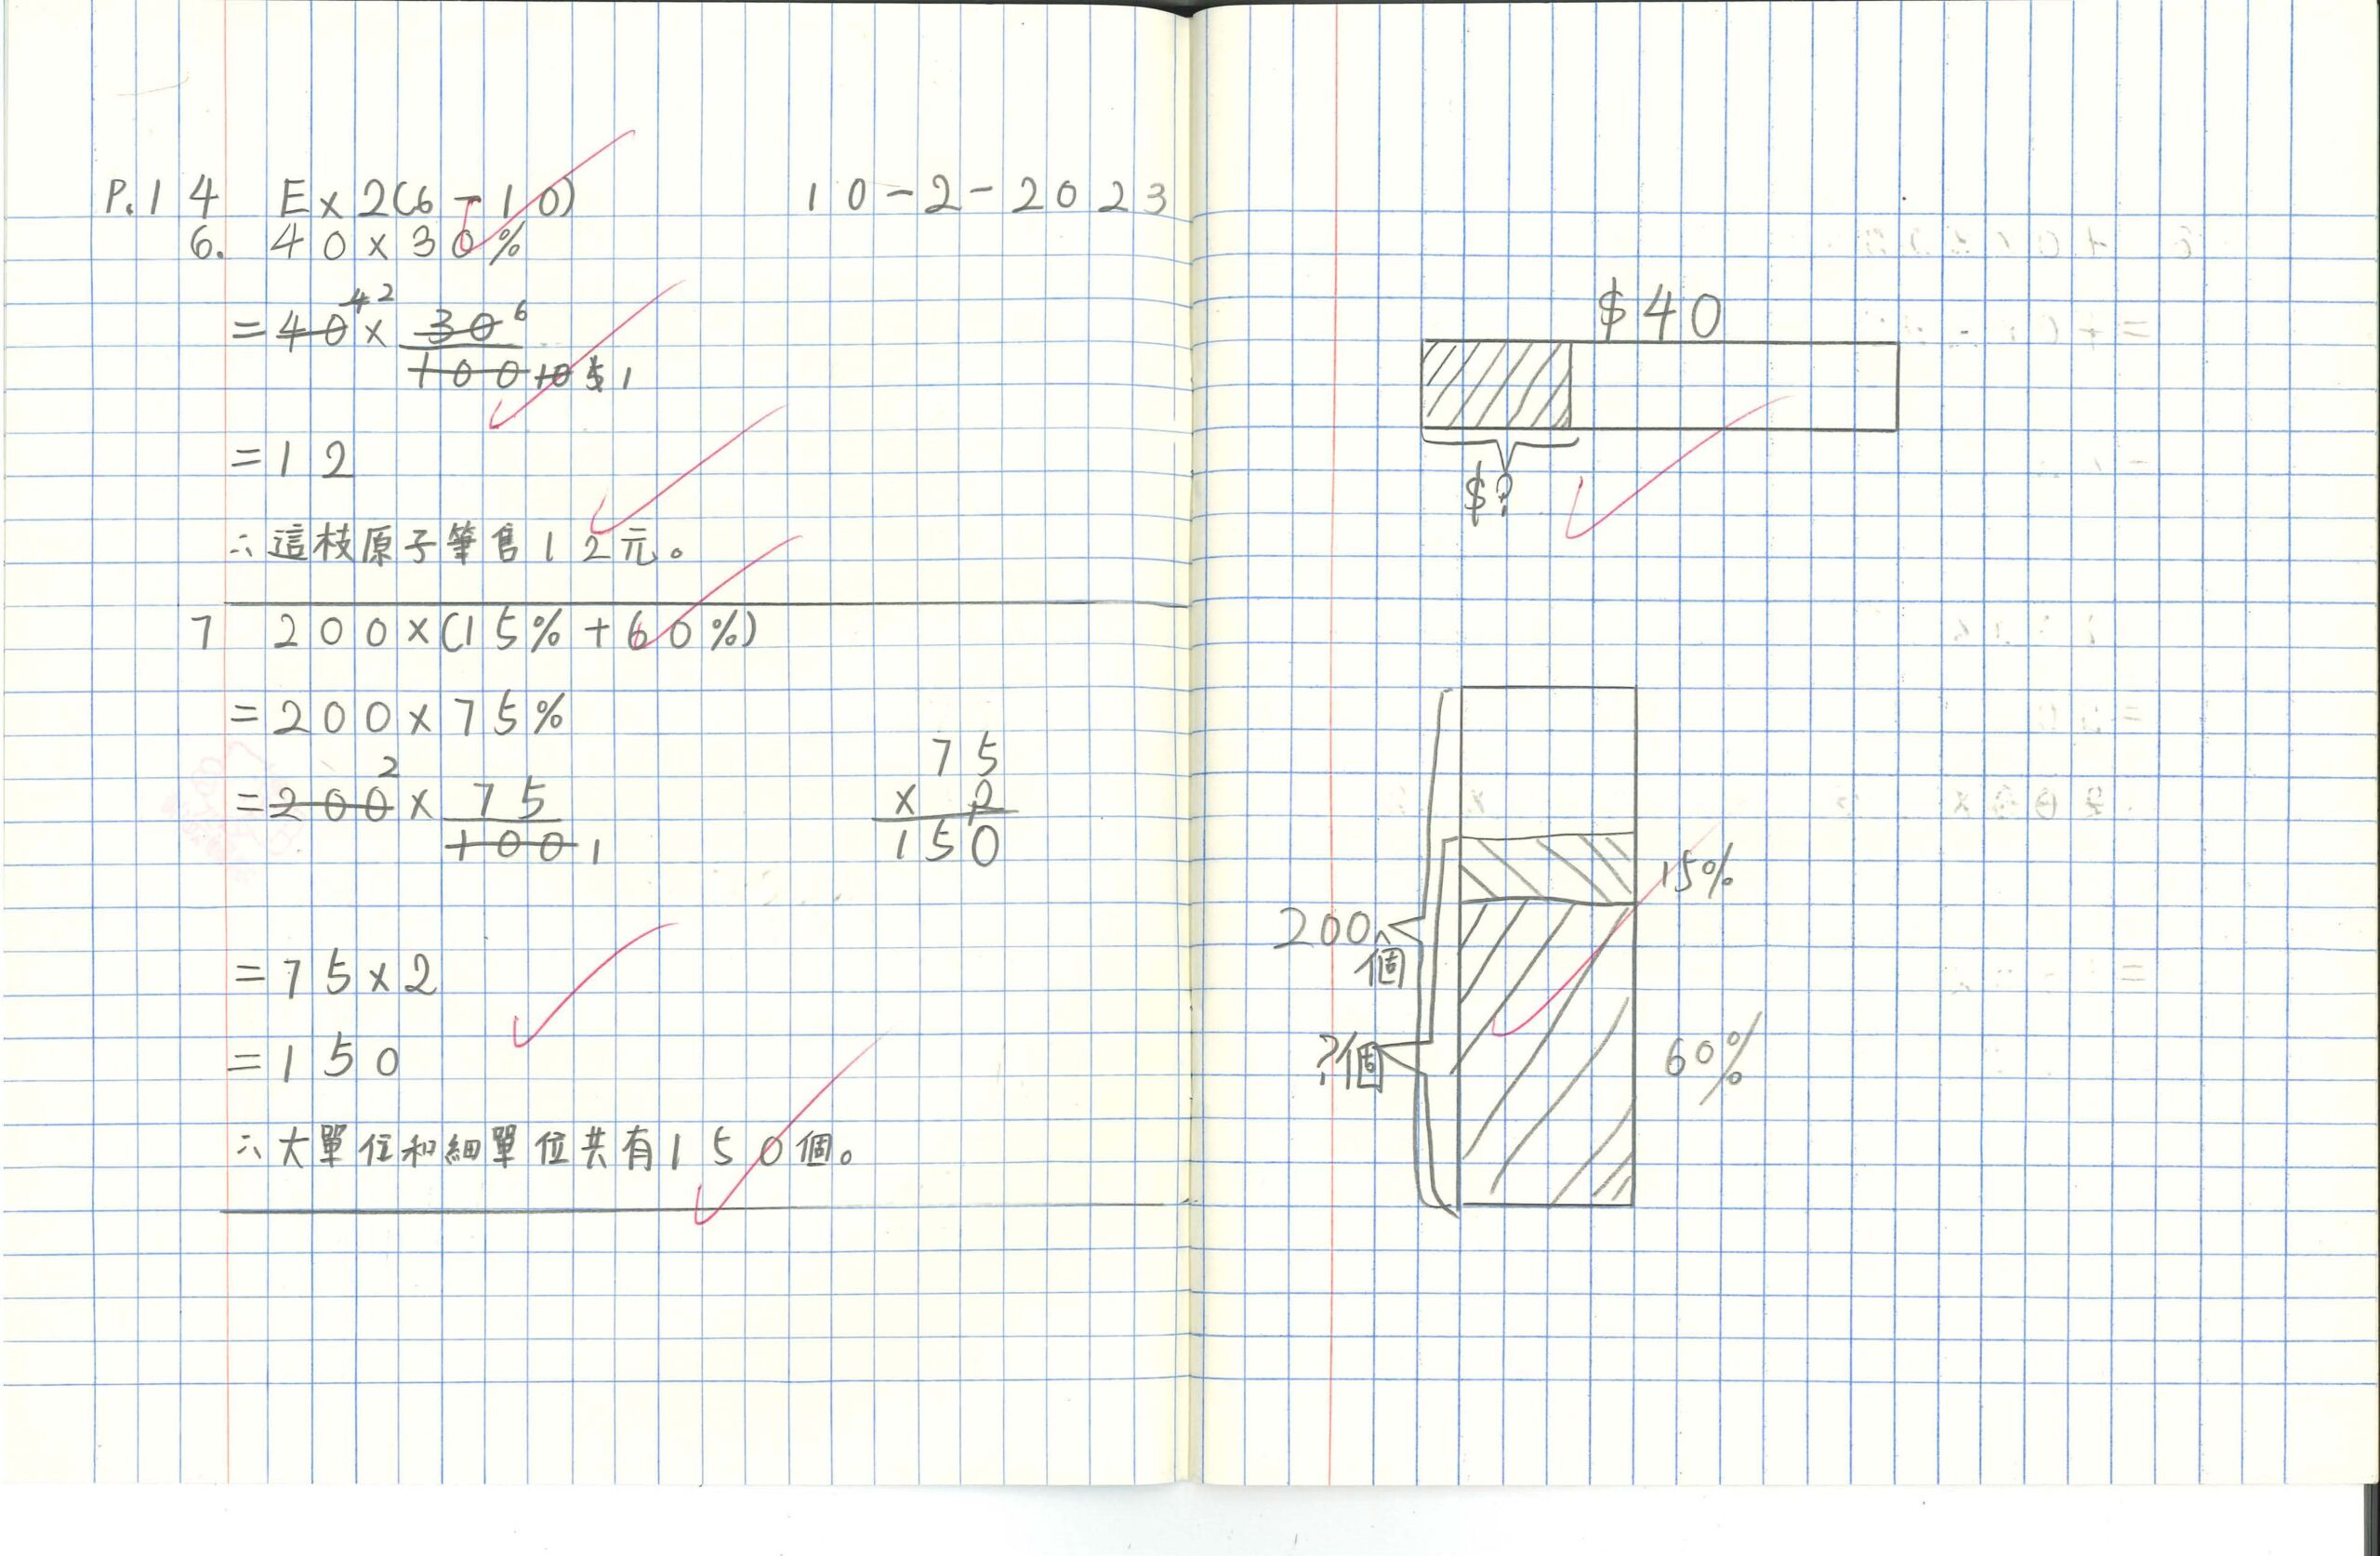 P.14 Ex 2(6-10) 10-2-2023
6. 40×30%
=40 4 2 × 30 6
100 10 5 1
=12
∴這枝原子筆售12元。
7 200×(15%+60%)
=200×75%
=200 2 × 75
100 1
75
× 2
150
=75×2
=150
∴大單位和細單位共有150個。
$40
$?
15%
200個
?個
60%